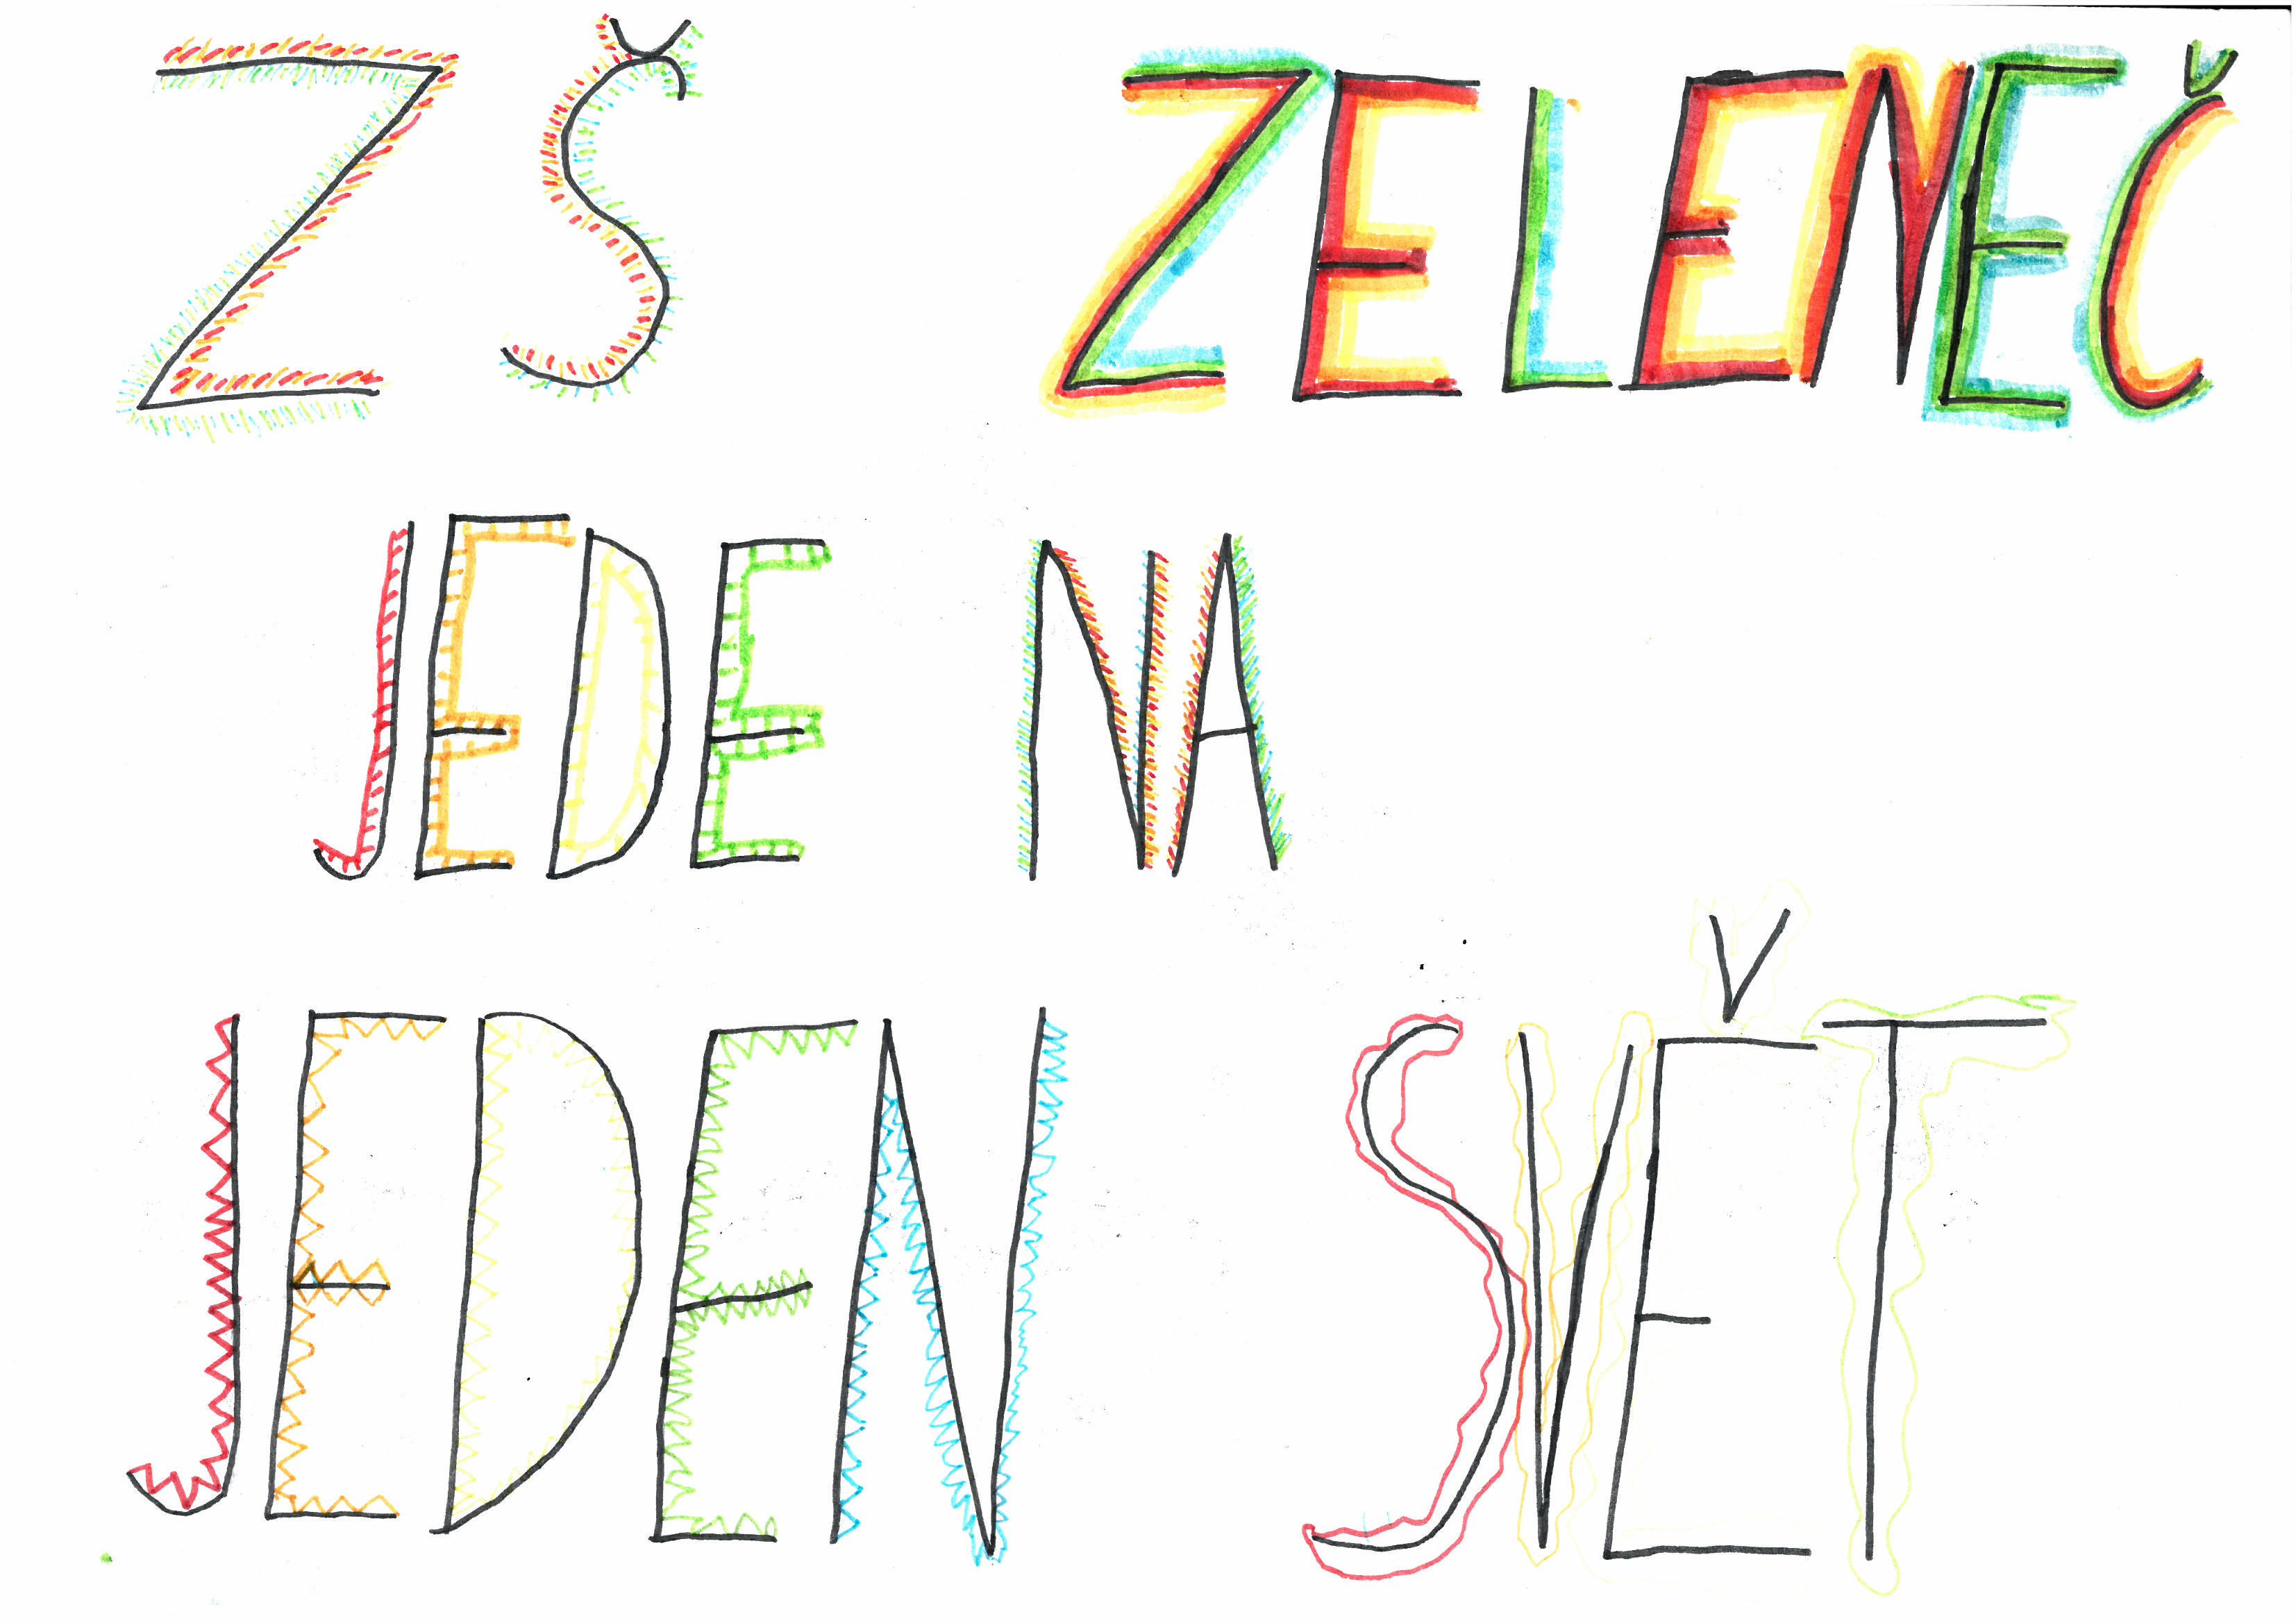 ZŠ ZELENEČ
JEDE NA
JEDEN SVĚT